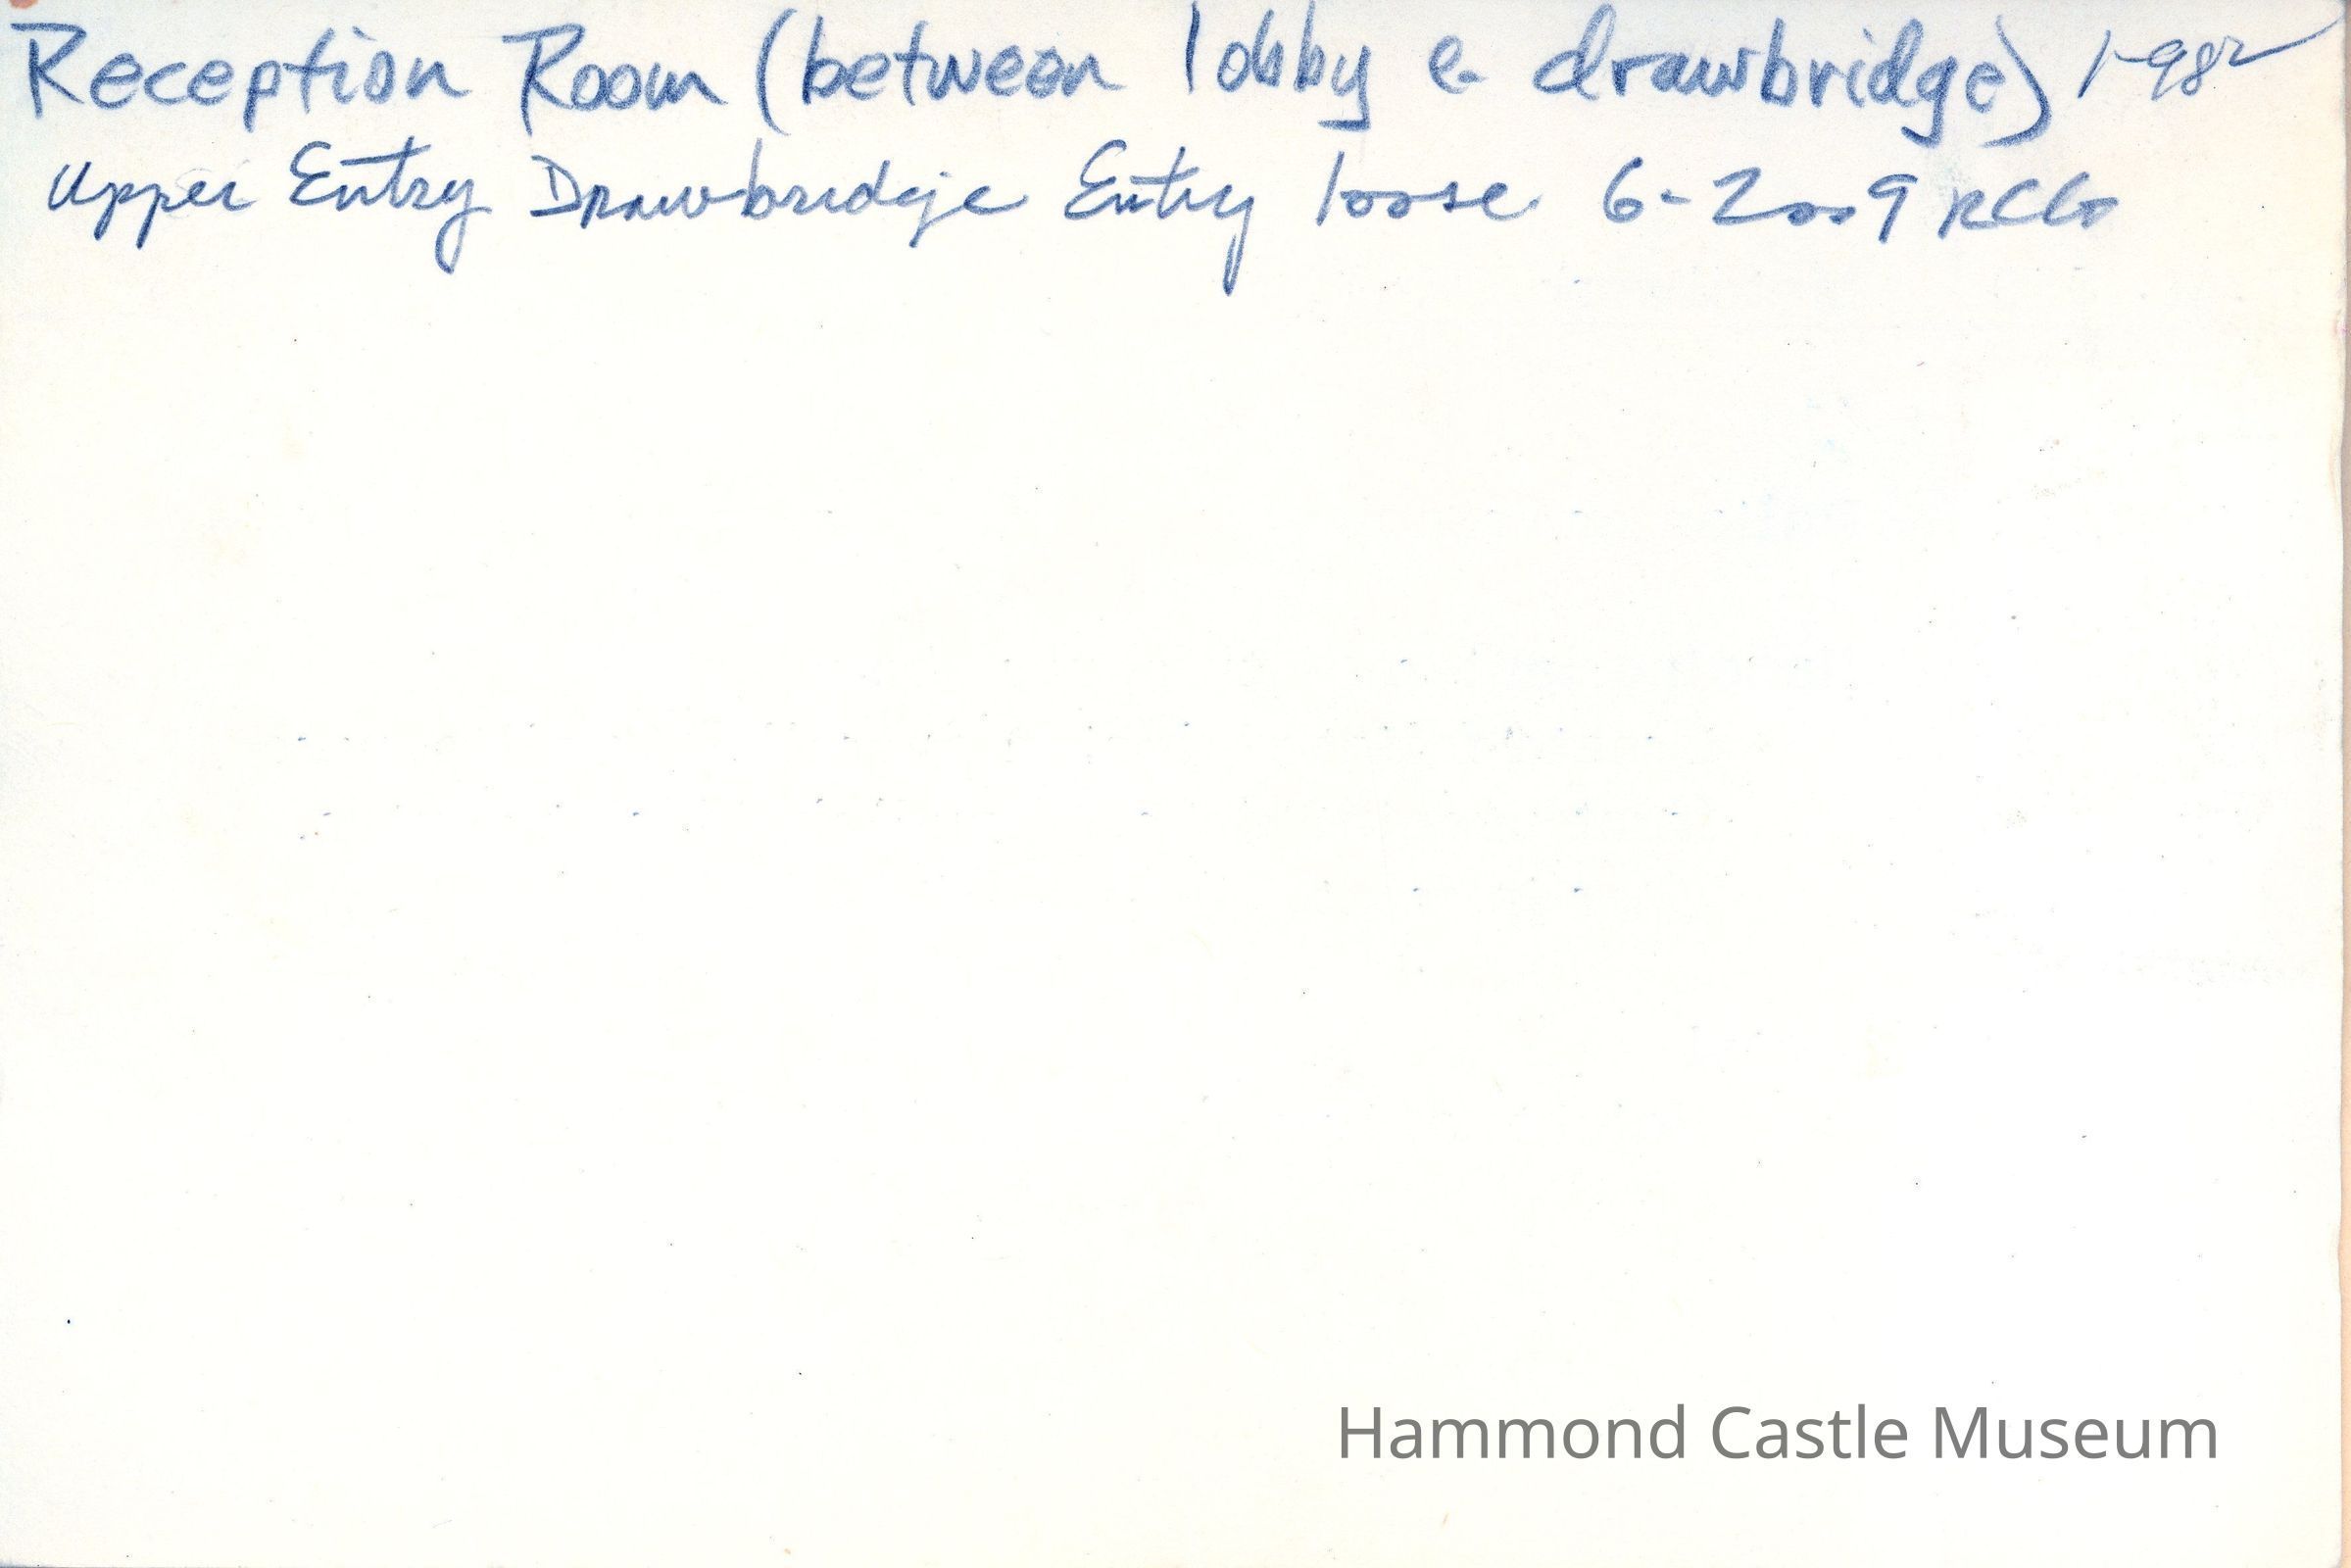 Reception Room (between lobby & drawbridge) 1-98
Upper Entry Drawbridge Entry loose 6-2009
Hammond Castle Museum